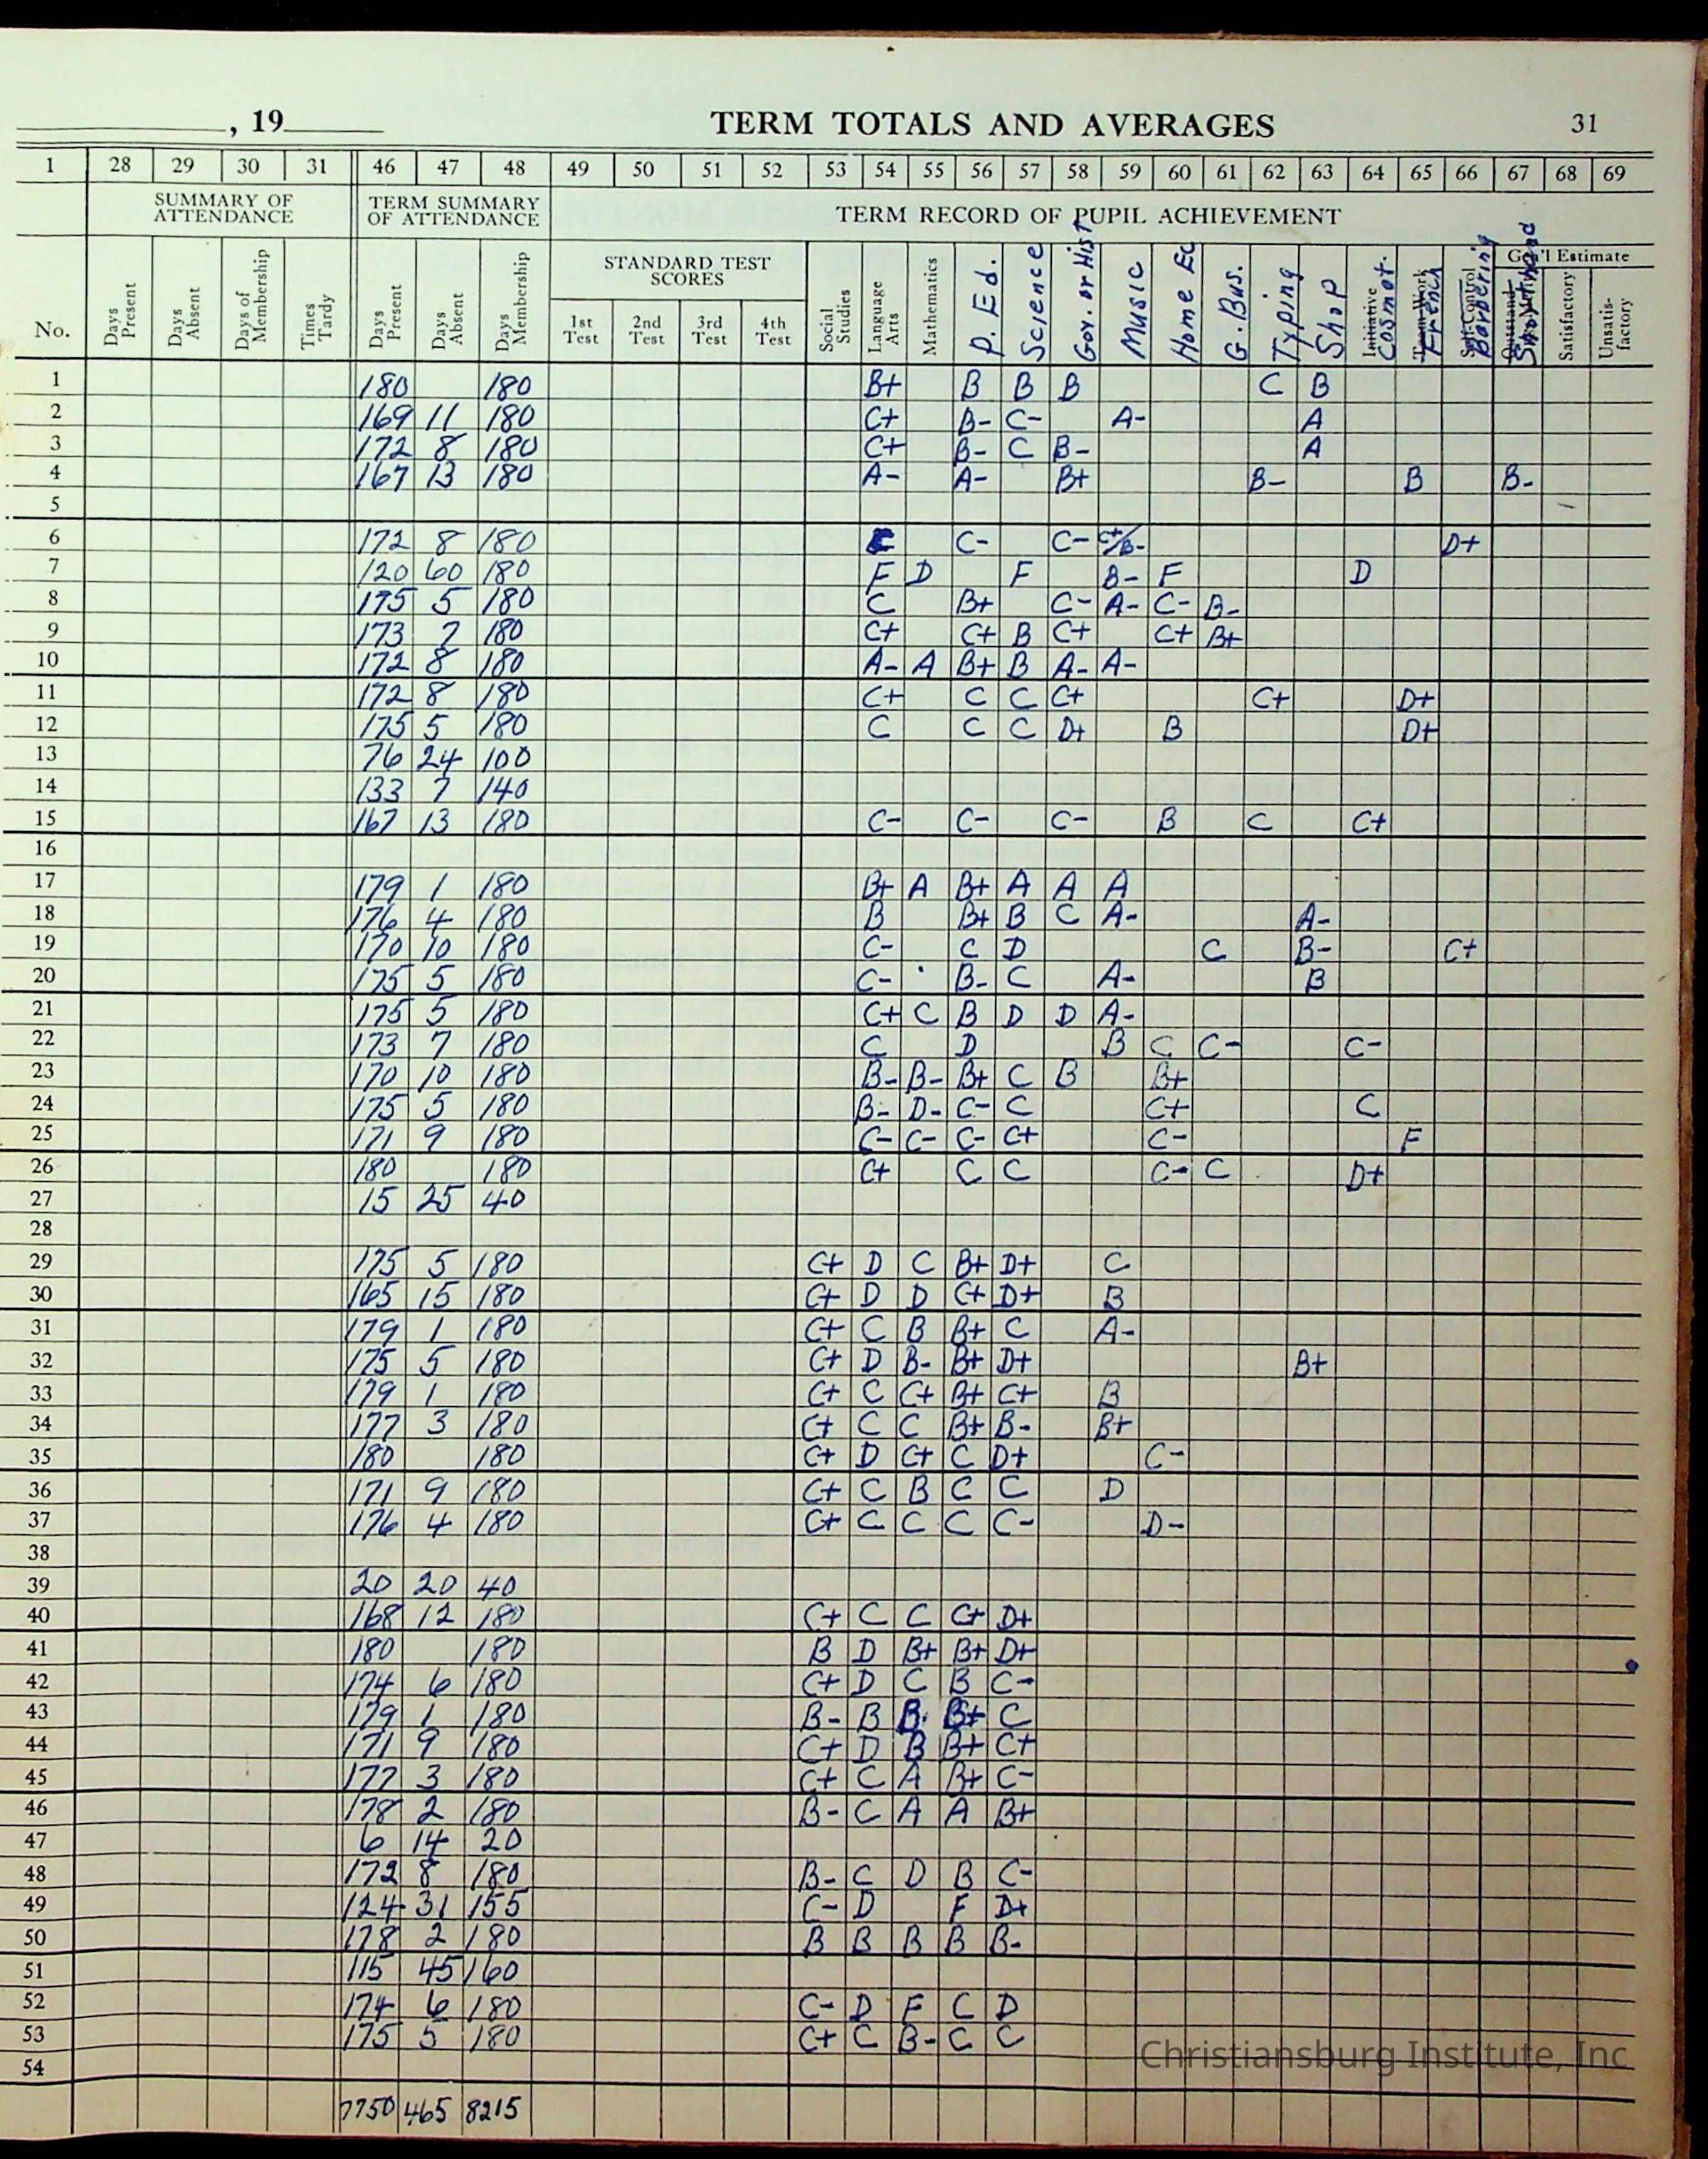 , 19 TERM TOTALS AND AVERAGES 31
1 28 29 30 31 46 47 48 49 50 51 52 53 54 55 56 57 58 59 60 61 62 63 64 65 66 67 68 69
SUMMARY OF ATTENDANCE TERM SUMMARY OF ATTENDANCE TERM RECORD OF PUPIL ACHIEVEMENT
STANDARD TEST SCORES Gen'l Estimate
No. Days Present Days Absent Days of Membership Times Tardy Days Present Days Absent Days Membership 1st Test 2nd Test 3rd Test 4th Test Social Studies Language Arts Mathematics P. Ed. Science Gov. or Hist Music Home Ec G. Bus. Typing Shop Initiative Cosmot. Team Work French Self-Control Barbering Shorthand Satisfactory Unsatisfactory
1 180 180 B+ B B B C B
2 169 11 180 C+ B- C- A- A
3 172 8 180 C+ B- C B- A
4 167 13 180 A- A- B+ B- B B-
5
6 172 8 180 C- C- C+/B- D+
7 120 60 180 F D F B- F D
8 175 5 180 C B+ C- A- C- B-
9 173 7 180 C+ C+ B C+ C+ B+
10 172 8 180 A- A B+ B A- A-
11 172 8 180 C+ C C C+ C+ D+
12 175 5 180 C C C D+ B D+
13 76 24 100
14 133 7 140
15 167 13 180 C- C- C- B C C+
16
17 179 1 180 B+ A B+ A A A
18 176 4 180 B B+ B C A- A-
19 170 10 180 C- C D C B- C+
20 175 5 180 C- B- C A- B
21 175 5 180 C+ C B D D A-
22 173 7 180 C D B C C- C-
23 170 10 180 B- B- B+ C B B+
24 175 5 180 B- D- C- C C+ C
25 171 9 180 C- C- C- C+ C- F
26 180 180 C+ C C C- C D+
27 15 25 40
28
29 175 5 180 C+ D C B+ D+ C
30 165 15 180 C+ D D C+ D+ B
31 179 1 180 C+ C B B+ C A-
32 175 5 180 C+ D B- B+ D+ B+
33 179 1 180 C+ C C+ B+ C+ B
34 177 3 180 C+ C C B+ B- B+
35 180 180 C+ D C+ C D+ C-
36 171 9 180 C+ C B C C D
37 176 4 180 C+ C C C C- D-
38
39 20 20 40
40 168 12 180 C+ C C C+ D+
41 180 180 B D B+ B+ D+
42 174 6 180 C+ D C B C-
43 179 1 180 B- B B B+ C
44 171 9 180 C+ D B B+ C+
45 177 3 180 C+ C A B+ C-
46 178 2 180 B- C A A B+
47 6 14 20
48 172 8 180 B- C D B C-
49 124 31 155 C- D F D+
50 178 2 180 B B B B B-
51 115 45 160
52 174 6 180 C- D F C D
53 175 5 180 C+ C B- C C
54
7750 465 8215
Christiansburg Institute, Inc